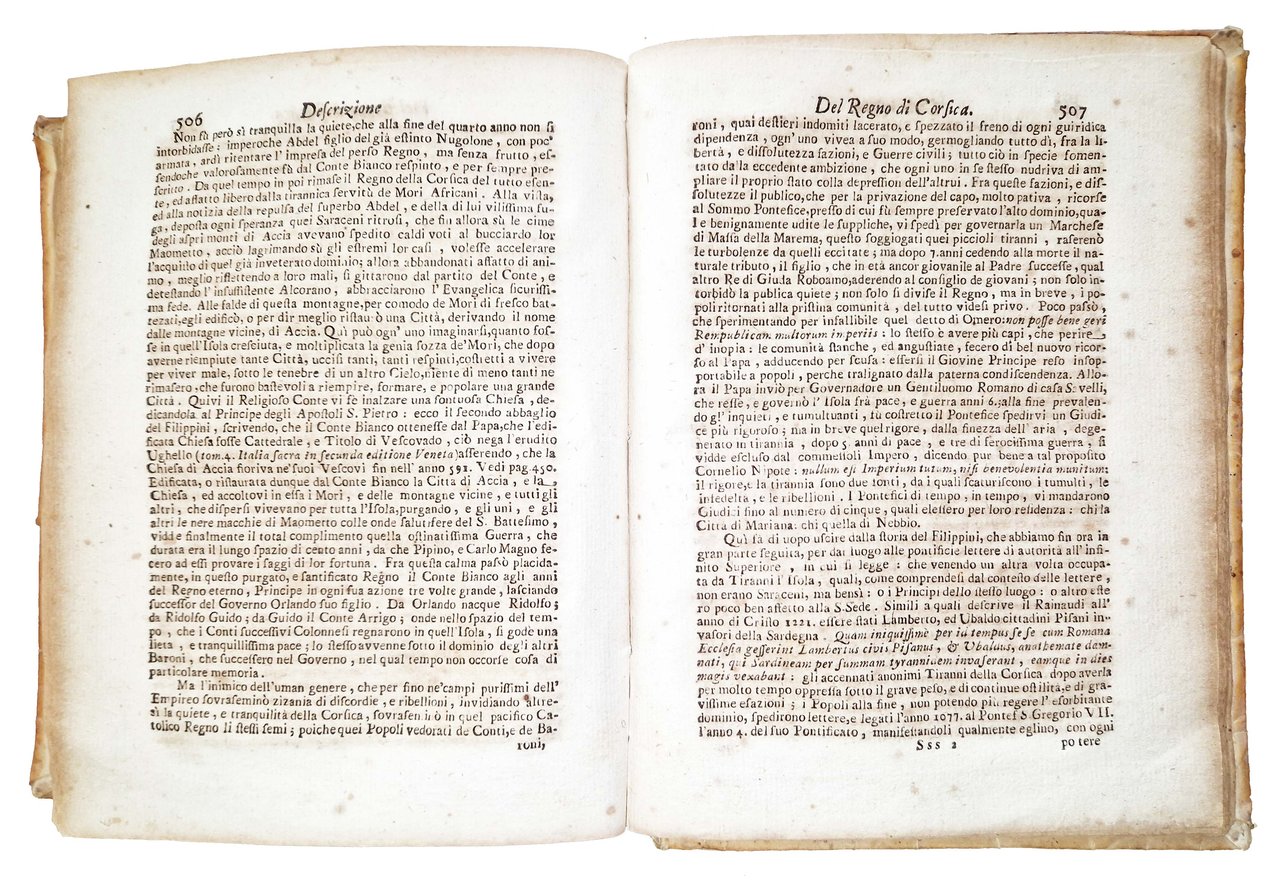 506
Descrizione
Non fù però sì tranquilla la quiete,che alla fine del quarto anno non si
intorbidasse: imperoche Abdel figlio del già estinto Nugolone, con poc'
armata, ardì ritentare l'impresa del perso Regno, ma senza frutto, es-
sendoche valorosamente fù dal Conte Bianco respinto, e per sempre pre-
scritto. Da quel tempo in poi rimase il Regno della Corsica del tutto esen-
te, ed affatto libero dalla tirannica servitù de Mori Africani. Alla vista,
ed alla notizia della repulsa del superbo Abdel, e della di lui vilissima fu-
ga, deposta ogni speranza quei Saraceni ritrosi, che fin allora sù le cime
degli aspri monti di Accia avevano spedito caldi voti al bucciardo lor
Maometto, acciò lagrimando sù gli estremi lor casi, volesse accelerare
l'acquisto di quel già inveterato dominio; allora abbandonati affatto di ani-
mo, meglio riflettendo a loro mali, si gittarono dal partito del Conte, e
detestando l'insussistente Alcorano, abbracciarono l'Evangelica sicurissi-
ma fede. Alle falde di questa montagne,per comodo de Mori di fresco bat-
tezati,egli edificò, o per dir meglio ristaurò una Città, derivando il nome
dalle montagne vicine, di Accia. Quì può ogn' uno imaginarsi,quanto fos-
se in quell'Isola cresciuta, e moltiplicata la genia sozza de'Mori, che dopo
averne riempiute tante Città, uccisi tanti, tanti respinti,costretti a vivere
per viver male, sotto le tenebre di un altro Cielo,niente di meno tanti ne
rimasero,che furono bastevoli a riempire, formare, e popolare una grande
Città. Quivi il Religioso Conte vi fe inalzare una sontuosa Chiesa, de-
dicandola al Principe degli Apostoli S. Pietro: ecco il secondo abbaglio
del Filippini, scrivendo, che il Conte Bianco ottenesse dal Papa,che l'edi-
ficata Chiesa fosse Cattedrale, e Titolo di Vescovado, ciò nega l'erudito
Ughello (tom.4. Italia sacra in secunda editione Veneta)asserendo, che la
Chiesa di Accia fioriva ne'suoi Vescovi fin nell' anno 591. Vedi pag.450.
Edificata, o ristaurata dunque dal Conte Bianco la Città di Accia, e la
Chiesa, ed accoltovi in essa i Mori, e delle montagne vicine, e tutti gli
altri, che dispersi vivevano per tutta l'Isola,purgando, e gli uni, e gli
altri le nere macchie di Maometto colle onde salutifere del S. Battesimo,
vidde finalmente il total complimento quella ostinatissima Guerra, che
durata era il lungo spazio di cento anni, da che Pipino, e Carlo Magno fe-
cero ad essi provare i saggi di lor fortuna. Fra questa calma passò placida-
mente, in questo purgato, e santificato Regno il Conte Bianco agli anni
del Regno eterno, Principe in ogni sua azione tre volte grande, lasciando
successor del Governo Orlando suo figlio. Da Orlando nacque Ridolfo;
da Ridolfo Guido; da Guido il Conte Arrigo; onde nello spazio del tem-
po, che i Conti successivi Colonnesi regnarono in quell'Isola, si godè una
lieta, e tranquillissima pace; lo stesso avvenne sotto il dominio degli altri
Baroni, che successero nel Governo, nel qual tempo non occorse cosa di
particolare memoria.
Ma l'inimico dell'uman genere, che per fino ne'campi purissimi dell'
Empireo sovraseminò zizania di discordie, e ribellioni, invidiando altre-
sì la quiete, e tranquilità della Corsica, sovrasen inò in quel pacifico Ca-
tolico Regno li stessi semi; poiche quei Popoli vedorati de Conti,e de Ba-
roni,
Del Regno di Corsica.
507
roni, quai destieri indomiti lacerato, e spezzato il freno di ogni guiridica
dipendenza, ogn' uno vivea a suo modo, germogliando tutto dì, fra la li-
bertà, e dissolutezza fazioni, e Guerre civili; tutto ciò in specie fomen-
tato dalla eccedente ambizione, che ogni uno in se stesso nudriva di am-
pliare il proprio stato colla depression dell'altrui. Fra queste fazioni, e dis-
solutezze il publico,che per la privazione del capo, molto pativa, ricorse
al Sommo Pontefice,presso di cui fù sempre preservato l'alto dominio,qua-
le benignamente udite le suppliche, vi spedì per governarla un Marchese
di Massa della Marema, questo soggiogati quei piccioli tiranni, rasserenò
le turbolenze da quelli eccitate; ma dopo 7.anni cedendo alla morte il na-
turale tributo, il figlio, che in età ancor giovanile al Padre successe, qual
altro Re di Giuda Roboamo,aderendo al consiglio de giovani; non solo in-
torbidò la publica quiete; non solo si divise il Regno, ma in breve, i po-
poli ritornati alla pristina comunità, del tutto videsi privo. Poco passò,
che sperimentando per infallibile quel detto di Omero: non posse bene geri
Rempublicam multorum imperiis: lo stesso è avere più capi, che perire
d' inopia: le comunità stanche, ed angustiate, fecero di bel nuovo ricor-
so al Papa, adducendo per scusa: essersi il Giovine Principe reso insop-
portabile a popoli, perche tralignato dalla paterna condiscendenza. Allo-
ra il Papa inviò per Governadore un Gentiluomo Romano di casa Savelli,
che resse, e governò l'Isola frà pace, e guerra anni 6.;alla fine prevalen-
do gl'inquieti, e tumultuanti, fù costretto il Pontefice spedirvi un Giudi-
ce più rigoroso; ma in breve quel rigore, dalla finezza dell'aria, dege-
nerato in tirannia, dopo 5. anni di pace, e tre di ferocissima guerra, si
vidde escluso dal commessoli Impero, dicendo pur bene a tal proposito
Cornelio Nipote: nullum est Imperium tutum, nisi benevolentia munitum:
il rigore,e la tirannia sono due fonti, da i quali scaturiscono i tumulti, le
infedeltà, e le ribellioni. I Pontefici di tempo, in tempo, vi mandarono
Giudici fino al numero di cinque, quali elessero per loro residenza: chi la
Città di Mariana: chi quella di Nebbio.
Quì fà di uopo uscire dalla storia del Filippini, che abbiamo fin ora in
gran parte seguita, per dar luogo alle pontificie lettere di autorità all'infi-
nito Superiore, in cui si legge: che venendo un altra volta occupa-
ta da Tiranni l'Isola, quali, come comprendesi dal contesto delle lettere,
non erano Saraceni, ma bensì: o i Principi dello stesso luogo: o altro este-
ro poco ben affetto alla S.Sede. Simili a quali descrive il Rainaudi all'
anno di Cristo 1221. essere stati Lamberto, ed Ubaldo cittadini Pisani in-
vasori della Sardegna. Quam iniquissimè per id tempus se se cum Romana
Ecclesia gesserint Lambertus civis Pisanus, & Ubaldus, anathemate dam-
nati, qui Sardineam per summam tyranniaem invaserant, eamque in dies
magis vexabant: gli accennati anonimi Tiranni della Corsica dopo averla
per molto tempo oppressa sotto il grave peso, e di continue ostilità,e di gra-
vissime esazioni; i Popoli alla fine, non potendo più regere l'esorbitante
dominio, spedirono lettere,e legati l'anno 1077. al Pontef S Gregorio VII.
l'anno 4. del suo Pontificato, manifestandoli qualmente eglino, con ogni
Sss 2
potere